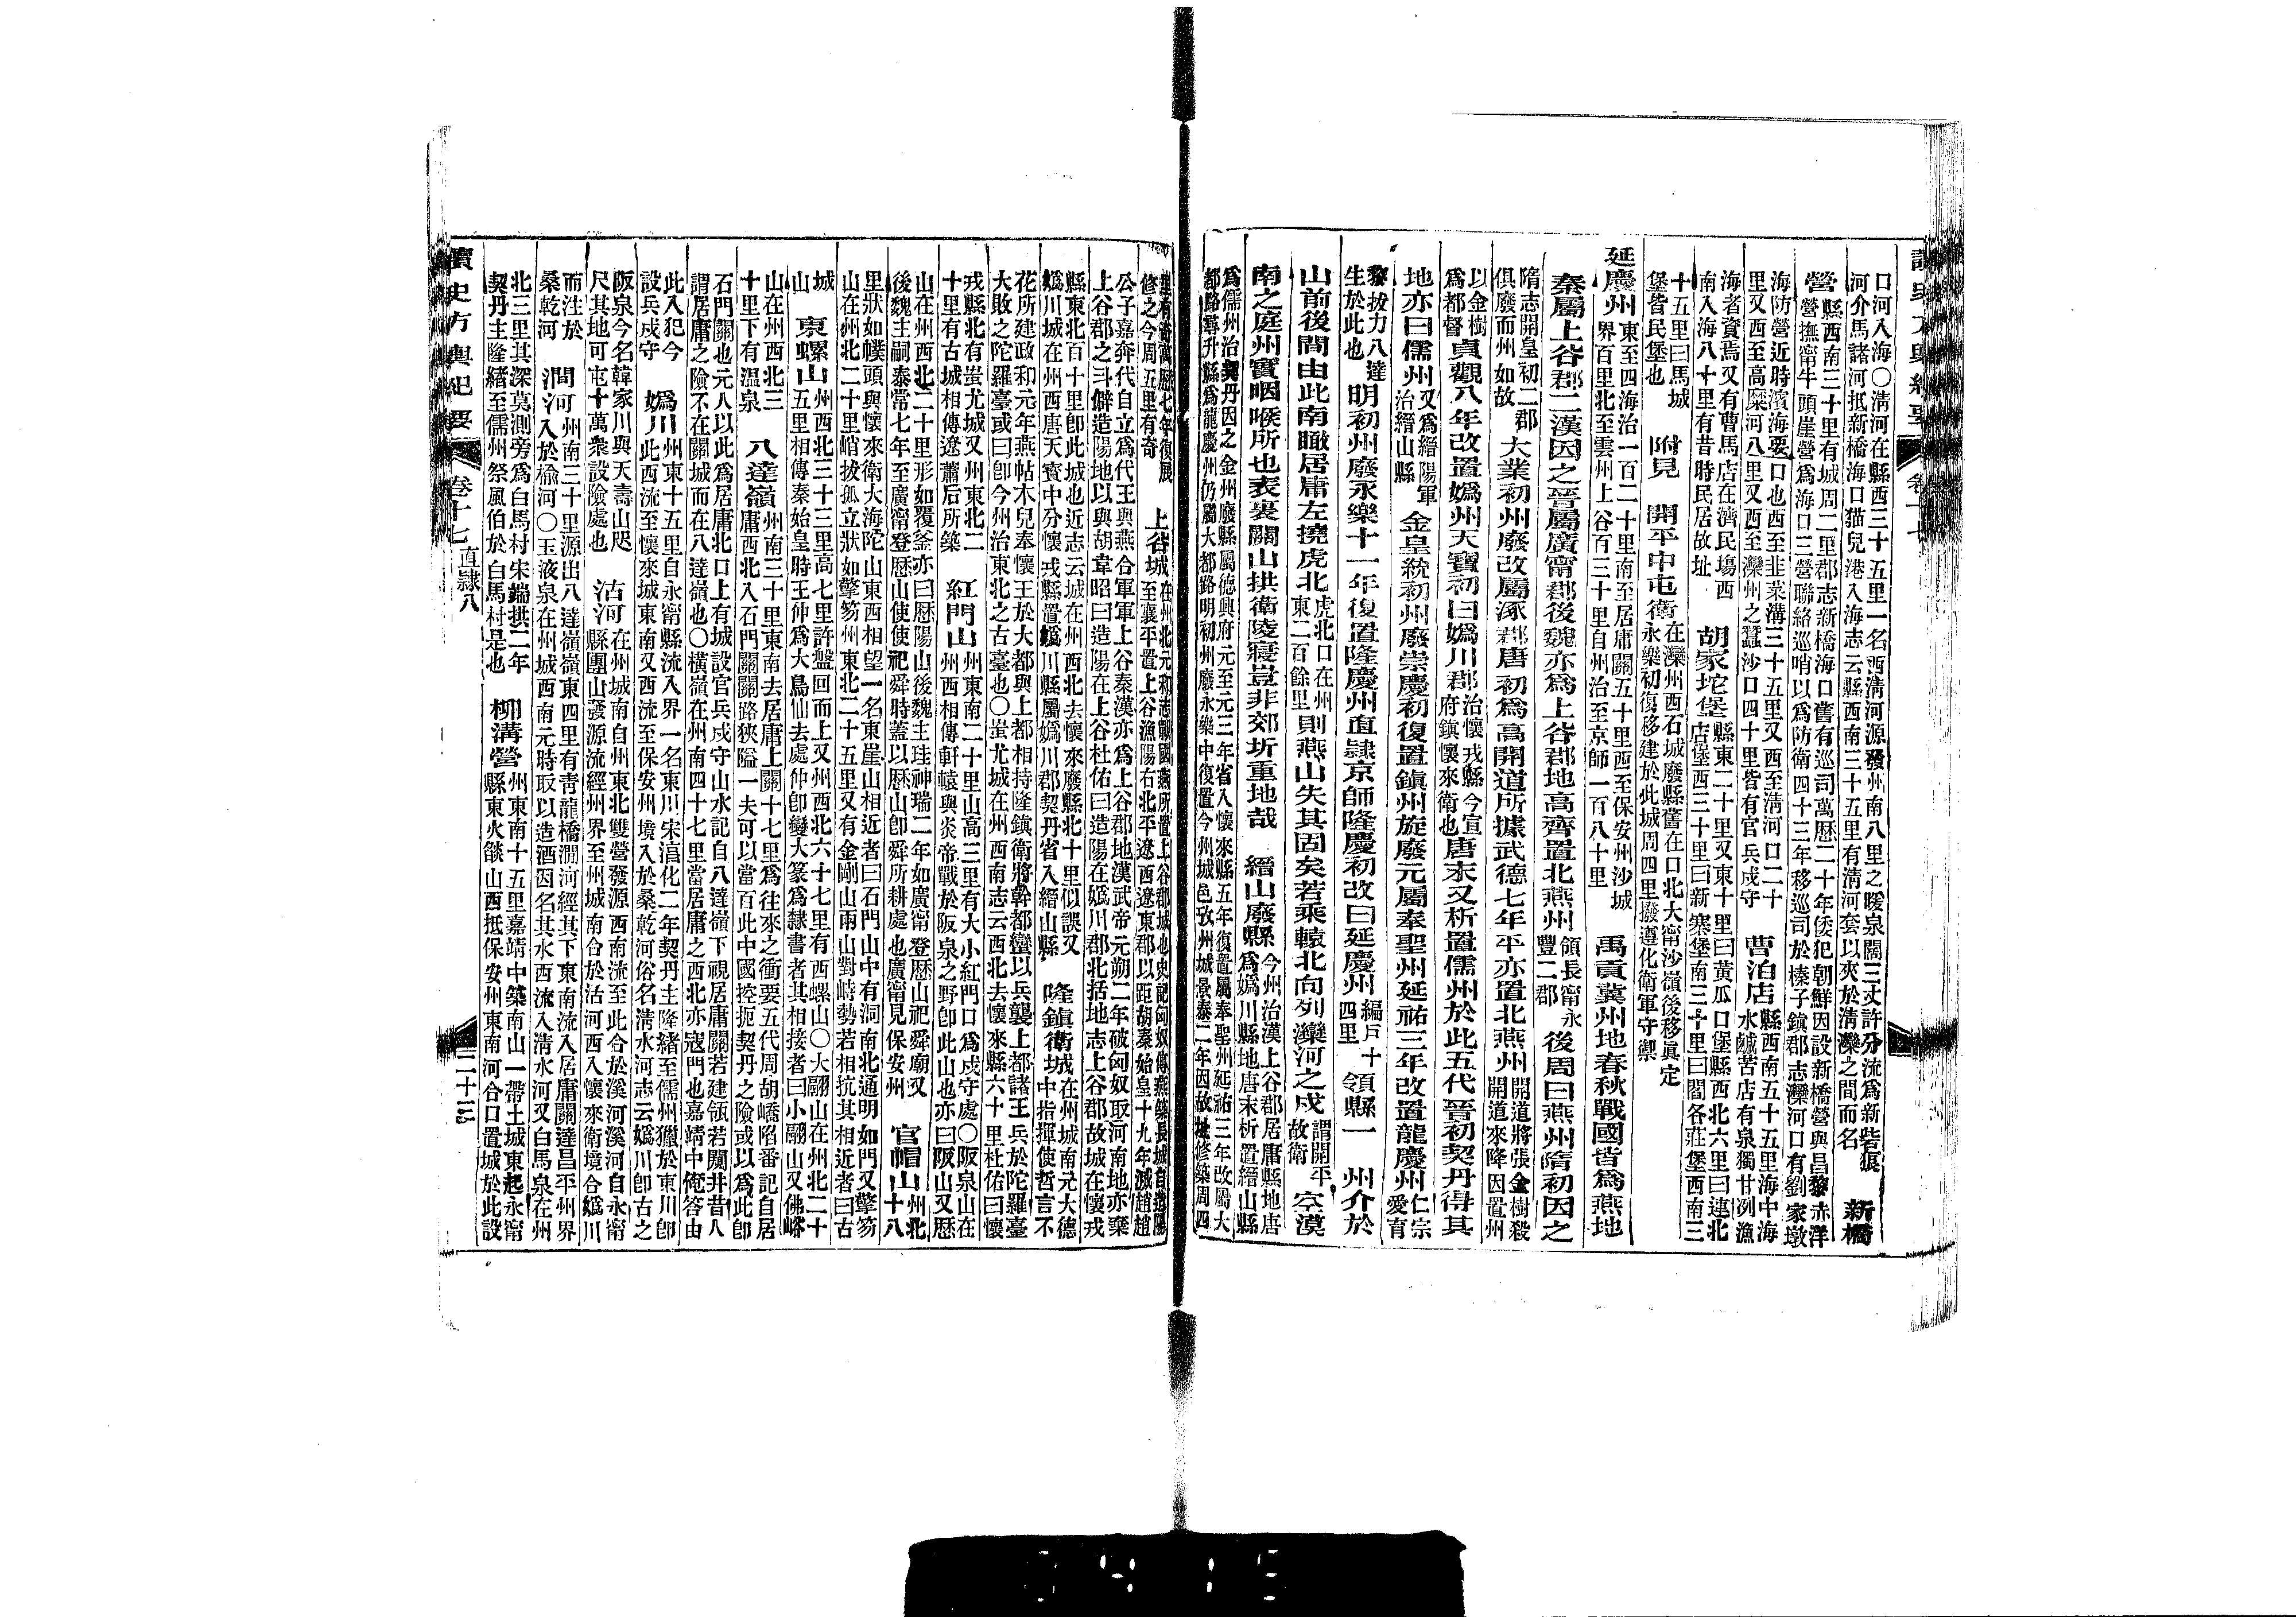 口河入海○淸河在縣西三十五里一名西淸河源發州南八里之暖泉闊三丈許分流爲新砦痕河介馬諸河抵新橋海口猫兒港入海志云縣西南三十五里有淸河套以夾於淸灤之間而名 新橋
營縣西南三十里有城周二里郡志新橋海口舊有巡司萬曆二十年倭犯朝鮮因設新橋營與昌黎赤洋營撫甯牛頭崖營爲海口三營聯絡巡哨以爲防衛四十三年移巡司於榛子鎭郡志灤河口有劉家墩
海防營近時濱海要口也西至韭菜溝三十五里又西至淸河口二十里又西至高糜河八里又西至灤州之蠶沙口四十里皆有官兵戍守 曹泊店縣西南五十五里海中海水鹹苦店有泉獨甘洌漁
海者資焉又有曹馬店在濟民場西南入海八十里有昔時民居故址 胡家坨堡縣東二十里又東十里曰黃瓜口堡縣西北六里曰連北店堡西三十里曰新寨堡南三十里曰閻各莊堡西南三
十五里曰馬城堡皆民堡也 附見 開平中屯衛在灤州西石城廢縣舊在口北大甯沙嶺後移眞定永樂初復移建於此城周四里撥遵化衛軍守禦
延慶州東至四海治一百二十里南至居庸關五十里西至保安州沙城界百里北至雲州上谷百三十里自州治至京師一百八十里 禹貢冀州地春秋戰國皆爲燕地
秦屬上谷郡二漢因之晉屬廣甯郡後魏亦爲上谷郡地高齊置北燕州領長甯永豐二郡 後周曰燕州隋初因之
隋志開皇初二郡俱廢而州如故 大業初州廢改屬涿郡唐初爲高開道所據武德七年平亦置北燕州開道將張金樹殺開道來降因置州
以金樹爲都督 貞觀八年改置嬀州天寶初曰嬀川郡治懷戎縣今宣府鎭懷來衛也 唐末又析置儒州於此五代晉初契丹得其
地亦曰儒州又爲縉陽軍治縉山縣 金皇統初州廢崇慶初復置鎭州旋廢元屬奉聖州延祐三年改置龍慶州仁宗愛育
黎拔力八達生於此也 明初州廢永樂十一年復置隆慶州直隸京師隆慶初改曰延慶州編戶十四里 領縣一 州介於
山前後間由此南瞰居庸左撓虎北虎北口在州東二百餘里 則燕山失其固矣若乘轅北向列灤河之戍謂開平故衛 空漠
南之庭州實咽喉所也表裏關山拱衛陵寢豈非郊圻重地哉 縉山廢縣今州治漢上谷郡居庸縣地唐爲嬀川縣地唐末析置縉山縣
爲儒州治契丹因之金州廢縣屬德興府元至元三年省入懷來縣五年復置屬奉聖州延祐三年改屬大都路尋升縣爲龍慶州仍屬大都路明初州廢永樂中復置今州城邑攷州城景泰二年因故址修築周四
里有奇萬曆七年復展修之今周五里有奇 上谷城在州北元和志戰國燕所置上谷郡城也史記匈奴傳燕築長城自造陽至襄平置上谷漁陽右北平遼西遼東郡以距胡秦始皇十九年滅趙趙
公子嘉奔代自立爲代王與燕合軍軍上谷秦漢亦爲上谷郡地漢武帝元朔二年破匈奴取河南地亦棄上谷郡之斗僻造陽地以與胡韋昭曰造陽在上谷杜佑曰造陽在嬀川郡北括地志上谷郡故城在懷戎
縣東北百十里卽此城也近志云城在州西北去懷來廢縣北十里似誤又嬀川城在州西唐天寳中分懷戎縣置嬀川縣屬嬀川郡契丹省入縉山縣 隆鎭衛城在州城南元大德中指揮使哲言不
花所建政和元年燕帖木兒奉懷王於大都與上都相持隆鎭衛將斡都蠻以兵襲上都諸王兵於陀羅臺大敗之陀羅臺或曰卽今州治東北之古臺也○蚩尤城在州西南志云西北去懷來縣六十里杜佑曰懷
戎縣北有蚩尤城又州東北二十里有古城相傳遼蕭后所築 紅門山州東南二十里山高三里有大小紅門口爲戍守處○阪泉山在州西相傳軒轅與炎帝戰於阪泉之野卽此山也亦曰阪山又歷
山在州西北二十里形如覆釜亦曰歷陽山後魏主珪神瑞二年如廣甯登歷山祀舜廟又後魏主嗣泰常七年至廣甯登歷山使使祀舜時蓋以歷山卽舜所耕處也廣甯見保安州 官帽山州北十八
里狀如幞頭與懷來衛大海陀山東西相望一名東崖山相近者曰石門山中有洞南北通明如門又擎笏山在州北二十里峭拔孤立狀如擎笏州東北二十五里又有金剛山兩山對峙勢若相抗其相近者曰古
城山 東螺山州西北三十三里高七里許盤回而上又州西北六十七里有西螺山○大翮山在州北二十五里相傳秦始皇時王仲爲大鳥仙去處仲卽變大篆爲隸書者其相接者曰小翮山又佛峪
山在州西北三十里下有溫泉 八達嶺州南三十里東南去居庸上關十七里爲往來之衝要五代周胡嶠陷番記自居庸西北入石門關關路狹隘一夫可以當百此中國控扼契丹之險或以爲此卽
石門關也元人以此爲居庸北口上有城設官兵戍守山水記自八達嶺下視居庸關若建瓴若闚井昔人謂居庸之險不在關城而在八達嶺也○橫嶺在州南四十七里當居庸之西北亦寇門也嘉靖中俺答由
此入犯今設兵戍守 嬀川州東十五里自永甯縣流入界一名東川宋淳化二年契丹主隆緒至儒州獵於東川卽此西流至懷來城東南又西流至保安州境入於桑乾河俗名淸水河志云嬀川卽古之
阪泉今名韓家川與天壽山咫尺其地可屯十萬衆設險處也 沽河在州城南自州東北雙營發源西南流至此合於溪河溪河自永甯縣團山發源流經州界至州城南合於沽河西入懷來衛境合嬀川
而注於桑乾河 澗河州南三十里源出八達嶺嶺東四里有靑龍橋澗河經其下東南流入居庸關達昌平州界入於楡河○玉液泉在州城西南元時取以造酒因名其水西流入淸水河又白馬泉在州
北三里其深莫測旁爲白馬村宋端拱二年契丹主隆緒至儒州祭風伯於白馬村是也 柳溝營州東南十五里嘉靖中築南山一帶土城東起永甯縣東火燄山西抵保安州東南河合口置城於此設
讀史方輿紀要 卷十七 直隸八 二十三